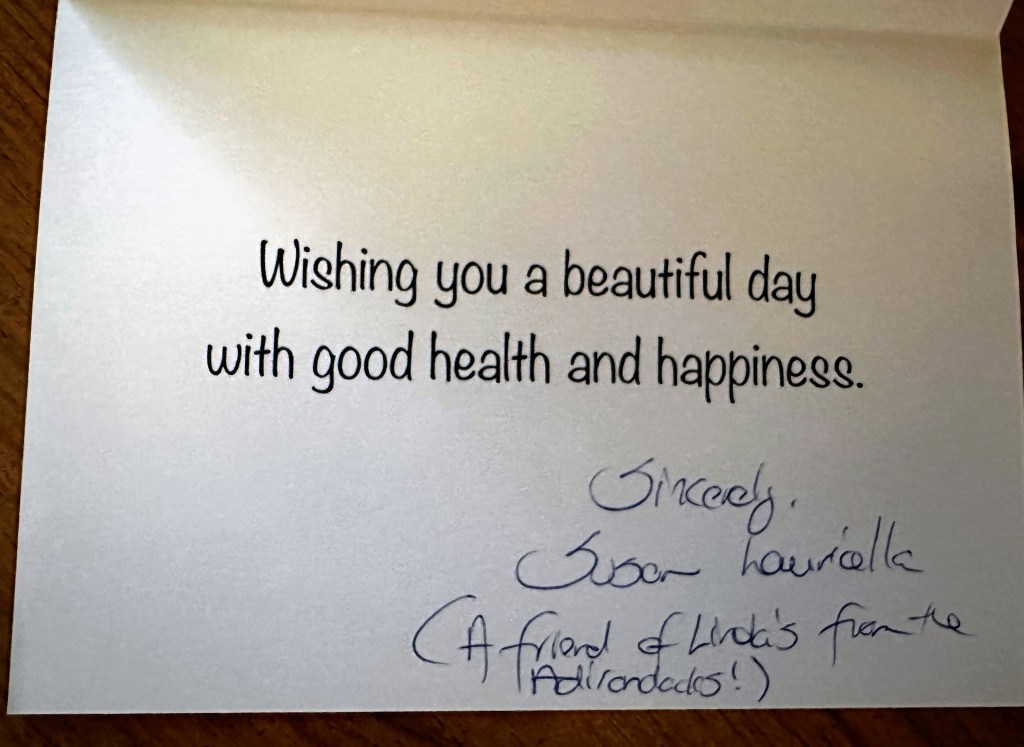 Wishing you a beautiful day
with good health and happiness.
Sincerely,
Susan Lauricella
(A friend of Linda's from the
Adirondacks!)